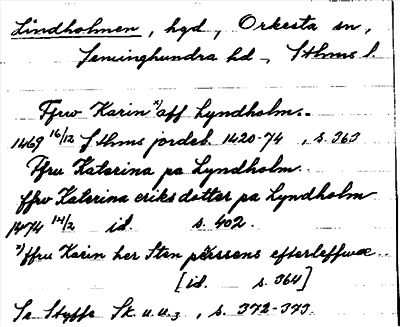 Lindholmen, hgd, Orkesta sn,
Seminghundra hd, Sthms l.
Ffrw Karin ²⁾ aff Lyndholm.
1469 16/12 Sthms jordeb. 1420-74, s. 363
Ffru Katerina pa Lyndholm
ffrv Katerina eriksdotter pa Lyndholm
1474 14/2 id. s. 402.
²⁾ ffru Karin her Sten pærssons efterleffwæ
[id. s. 364]
Se Styffe Sk. u. u. 3, s. 372-373.